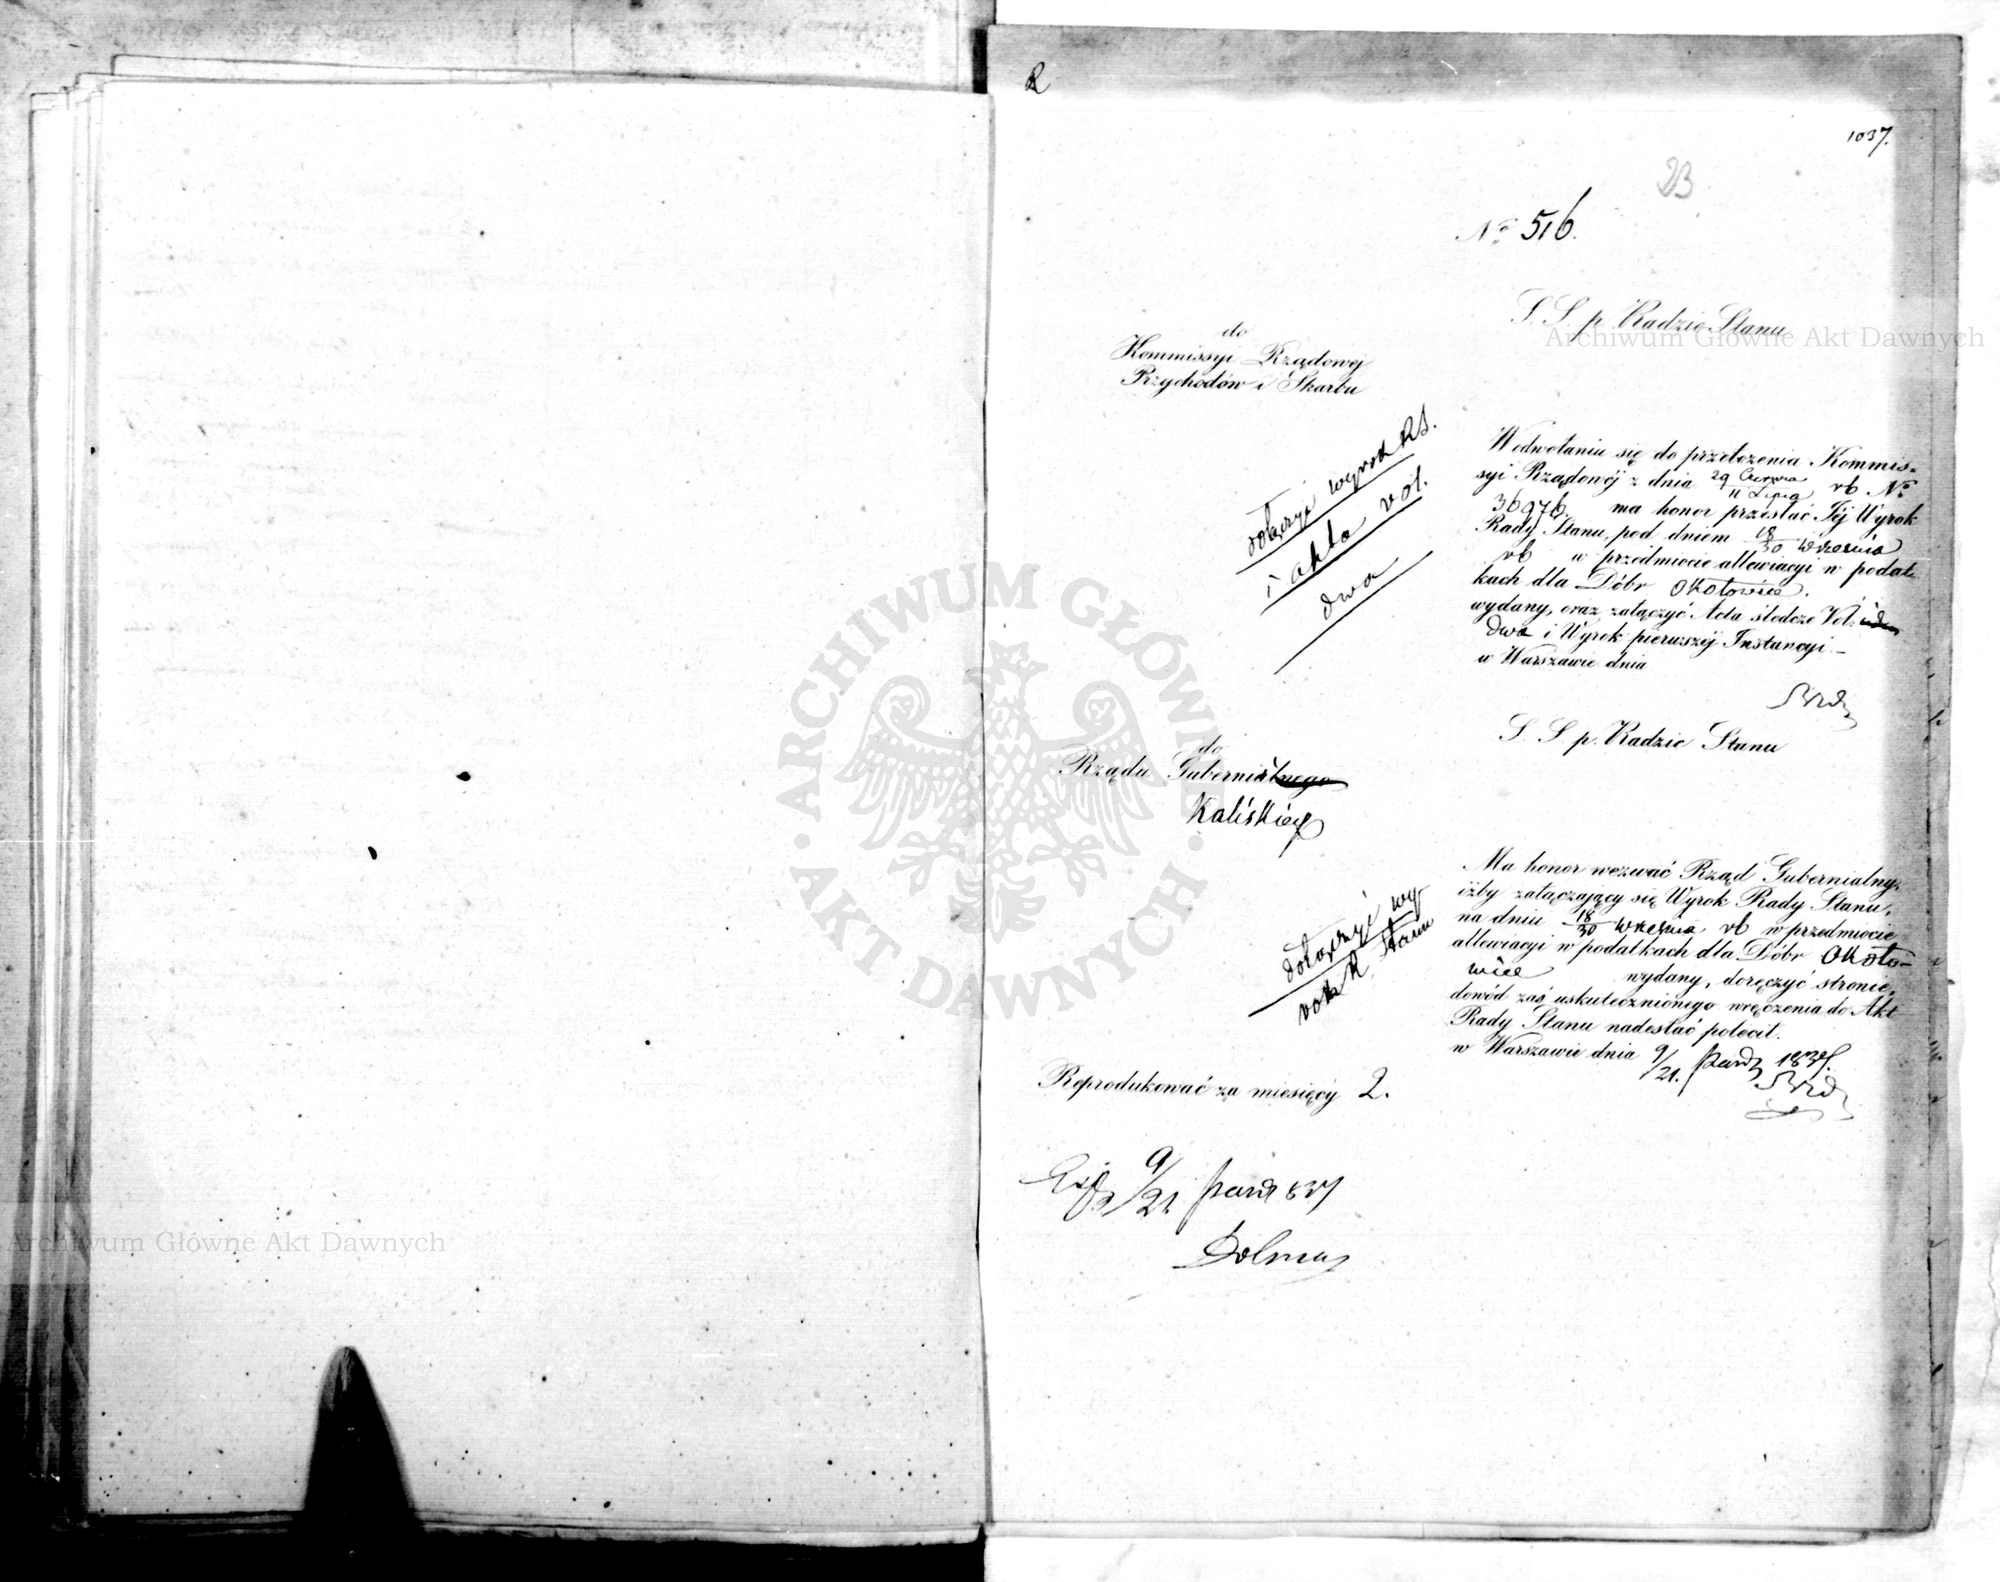 1037.
23
Nº 516.
S. S. p. Radzie Stanu
do
Kommissyi Rządowej
Przychodów i Skarbu
dołączyć wyrok RS.
i akta vol.
dwa
Wodwołaniu się do przełożenia Kommis-
syi Rządowéj z dnia 29 Czerwca / 11 Lipca rb Nº
36976. ma honor przesłać Jéj Wyrok
Rady Stanu, pod dniem 18/30 Września
rb w przedmiocie allewiacyi w podat-
kach dla Dóbr Okołowice.
wydany, oraz załączyć Acta śledcze Vol:
dwa i Wyrok pierwszéj Instancyi –
w Warszawie dnia
S. S p. Radzie Stanu
do
Rządu Gubernialnego
Kaliskieg
Ma honor wezwać Rząd Gubernialny,
iżby załączający się Wyrok Rady Stanu,
na dniu 18/30 Września rb w przedmiocie
allewiacyi w podatkach dla Dóbr Około-
wice wydany, doręczyć stronie,
dowód zaś uskutecznionego wręczenia do Akt
Rady Stanu nadesłać polecił.
w Warszawie dnia 9/21. Paźd 1837.
dołączyć wy-
rok R. Stanu
Reprodukować za miesięcy 2.
9/21 Paźd 837
Archiwum Główne Akt Dawnych
Archiwum Główne Akt Dawnych
ARCHIWUM GŁÓWNE · AKT DAWNYCH ·